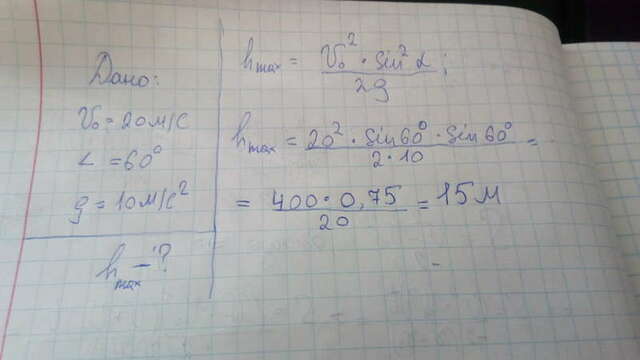 Дано:
V₀ = 20 м/с
∠ = 60°
g = 10 м/с²
hmax - ?
hmax = V₀² · sin² α / 2g ;
hmax = 20² · sin 60° · sin 60° / 2 · 10 =
= 400 · 0,75 / 20 = 15 м